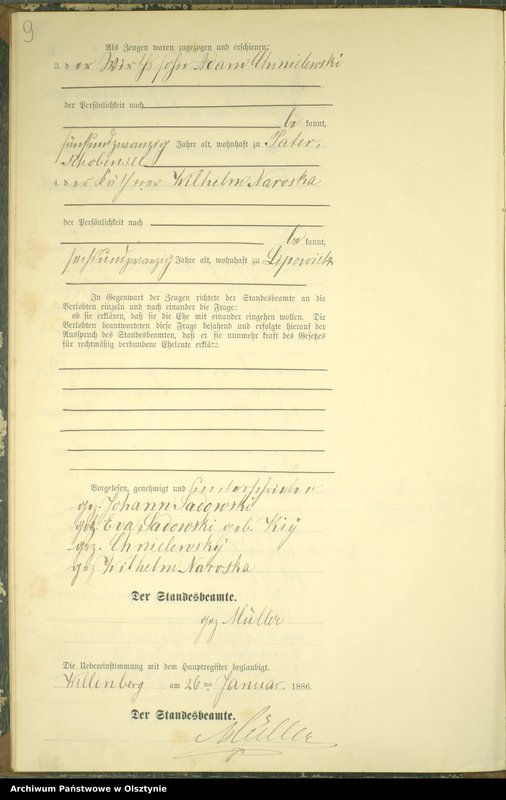 9
Als Zeugen waren zugezogen und erschienen:
3. der Wirthssohn Adam Chmielewski
der Persönlichkeit nach
be kannt,
fünfundzwanzig Jahre alt, wohnhaft zu Pater-
schobensee
4. der Käthner Wilhelm Naroska
der Persönlichkeit nach
be kannt,
sechsundzwanzig Jahre alt, wohnhaft zu Lipowietz
In Gegenwart der Zeugen richtete der Standesbeamte an die
Verlobten einzeln und nach einander die Frage:
ob sie erklären, daß sie die Ehe mit einander eingehen wollen. Die
Verlobten beantworteten diese Frage bejahend und erfolgte hierauf der
Ausspruch des Standesbeamten, daß er sie nunmehr kraft des Gesetzes
für rechtmäßig verbundene Eheleute erkläre.
Vorgelesen, genehmigt und unterschrieben
gez. Johann Sadowski
gez Eva Sadowski geb. Kiÿ
gez. Chmielewskÿ
gez Wilhelm Naroska
Der Standesbeamte.
gez Müller
Die Uebereinstimmung mit dem Hauptregister beglaubigt.
Willenberg am 26 ten Januar. 1886.
Der Standesbeamte.
Müller
Archiwum Państwowe w Olsztynie